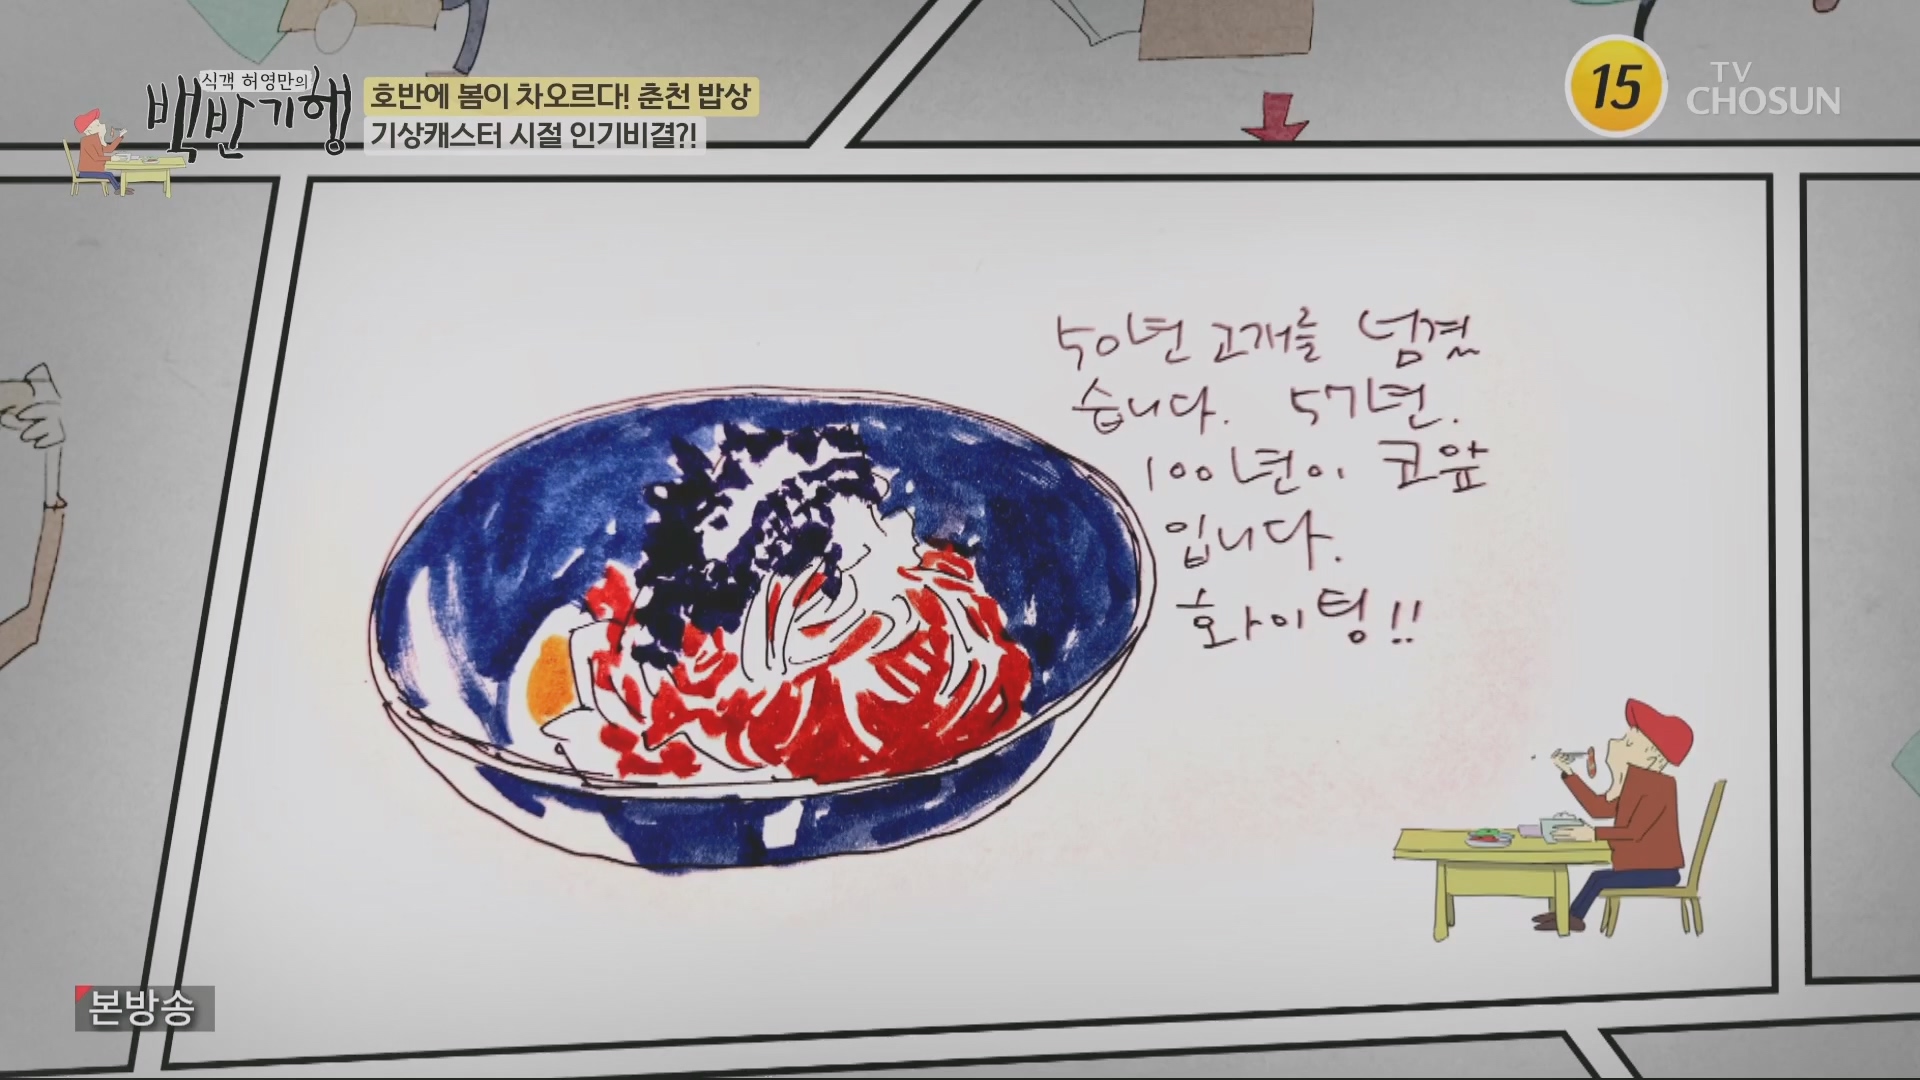 식객 허영만의
백반기행
호반에 봄이 차오르다! 춘천 밥상
기상캐스터 시절 인기비결?!
15
TV
CHOSUN
50년 고개를 넘겼
습니다. 57년.
100년이 코앞
입니다.
화이팅!!
본방송